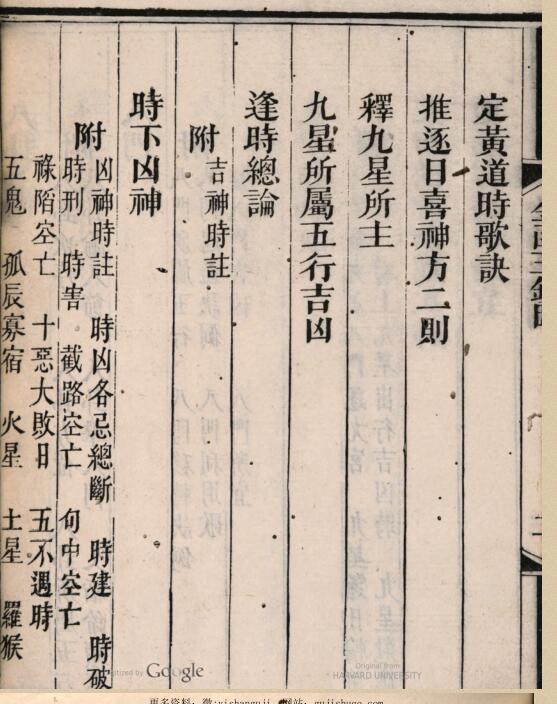 定黃道時歌訣
推逐日喜神方二則
釋九星所主
九星所屬五行吉凶
逢時總論
附 吉神時註
時下凶神
附 凶神時註 時凶各忌總斷 時建 時破
時刑 時害 截路空亡 旬中空亡
祿陷空亡 十惡大敗日 五不遇時
五鬼 孤辰寡宿 火星 土星 羅猴
Digitized by Google
Original from
HARVARD UNIVERSITY